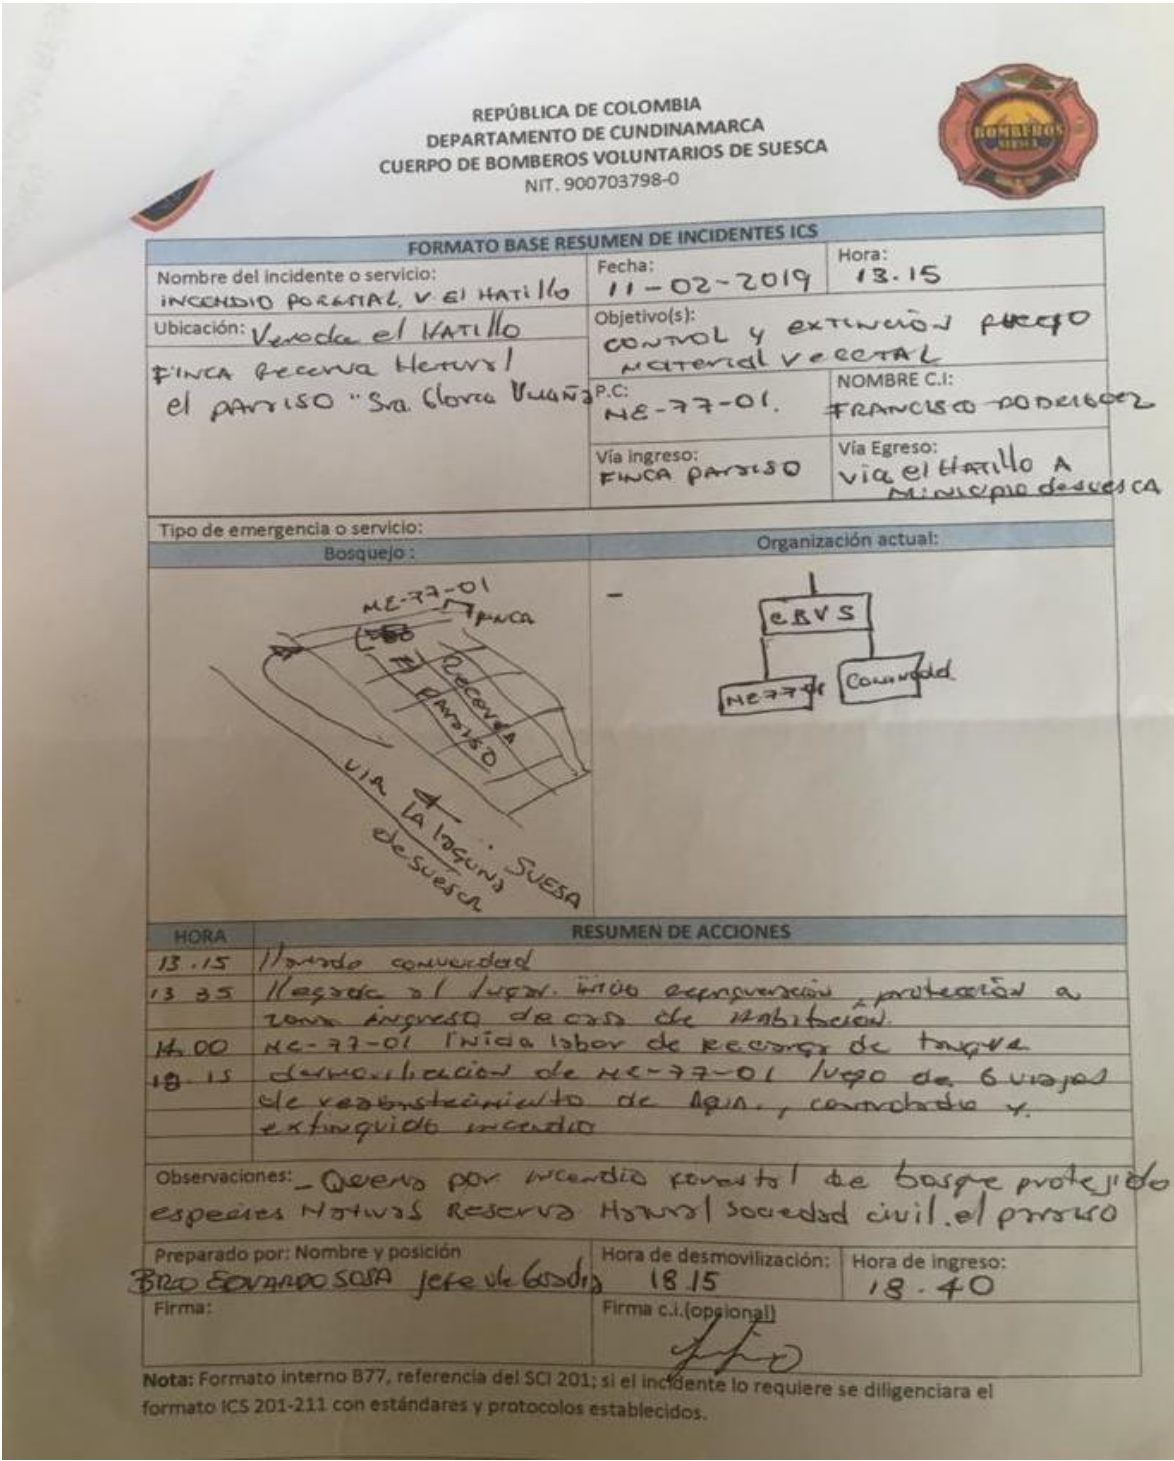 REPÚBLICA DE COLOMBIA
DEPARTAMENTO DE CUNDINAMARCA
CUERPO DE BOMBEROS VOLUNTARIOS DE SUESCA
NIT. 900703798-0
BOMBEROS
SUESCA
FORMATO BASE RESUMEN DE INCIDENTES ICS
Nombre del incidente o servicio:
INCENDIO FORESTAL, V. El HATillo
Fecha:
11-02-2019
Hora:
13.15
Ubicación: Vereda el HATillo
FINCA Recerva Natural
el PARAISO "Sra. Gloria
Objetivo(s):
CONTROL y EXTINCIÓN FUEGO
Material VEGETAL
P.C:
ME-77-01.
NOMBRE C.I:
FRANCISCO RODRIGUEZ
Vía ingreso:
FINCA PARAISO
Vía Egreso:
Via el HATillo A
Municipio de suesca
Tipo de emergencia o servicio:
Bosquejo :
Organización actual:
ME-77-01
FINCA
Recerva
El PARAISO
VIA LA laguna
de suesca
SUESA
-
CBVS
ME77-01
Comunidad
HORA
RESUMEN DE ACCIONES
13.15 llamado comunidad
13 35 llegada al lugar. inicio protección a
zona ingreso de casa de Habitacion.
14.00 ME-77-01 Inicia labor de Recarga de tanque
18.15 desmovilización de ME-77-01 luego de 6 viajes
de reabastecimiento de Agua., controlado y
extinguido incendio
Observaciones: - Quema por incendio forestal de bosque protejido
especies Nativas Reserva Natural sociedad civil. el paraiso
Preparado por: Nombre y posición
BRO EDUARDO SOSA Jefe de Guardia
Hora de desmovilización:
18.15
Hora de ingreso:
18.40
Firma:
Firma c.i.(opsional)
Nota: Formato interno B77, referencia del SCI 201; si el incidente lo requiere se diligenciara el
formato ICS 201-211 con estándares y protocolos establecidos.